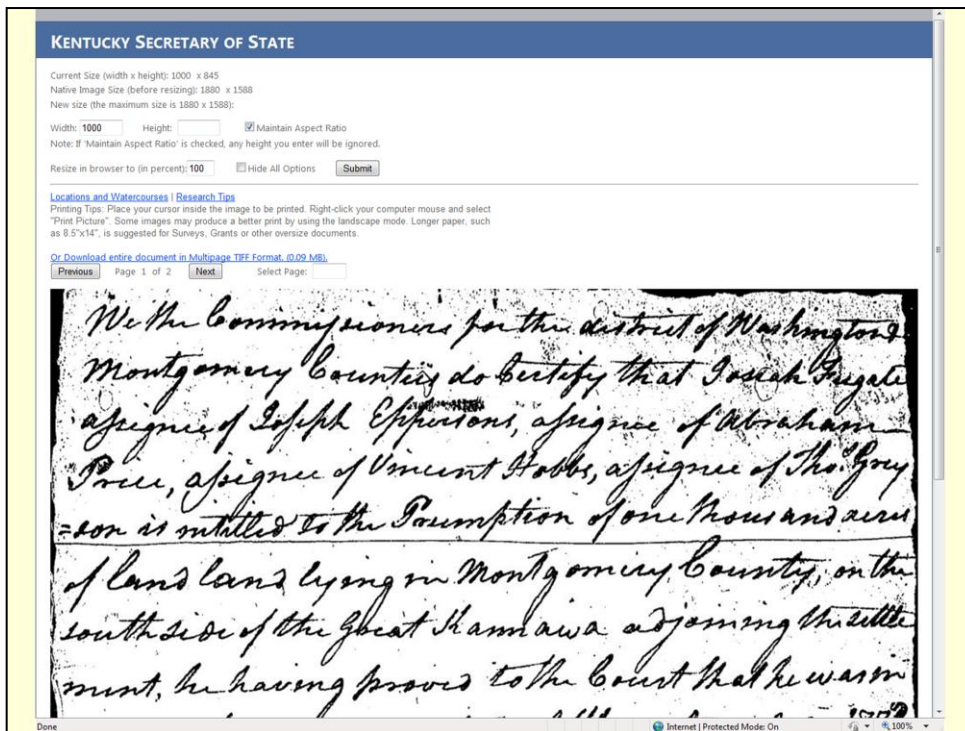 KENTUCKY SECRETARY OF STATE
Current Size (width x height): 1000 x 845
Native Image Size (before resizing): 1880 x 1588
New size (the maximum size is 1880 x 1588):
Width: 1000 Height: Maintain Aspect Ratio
Note: If 'Maintain Aspect Ratio' is checked, any height you enter will be ignored.
Resize in browser to (in percent): 100 Hide All Options Submit
Locations and Watercourses | Research Tips
Printing Tips: Place your cursor inside the image to be printed. Right-click your computer mouse and select
"Print Picture". Some images may produce a better print by using the landscape mode. Longer paper, such
as 8.5"x14", is suggested for Surveys, Grants or other oversize documents.
Or Download entire document in Multipage TIFF Format. (0.09 MB).
Previous Page 1 of 2 Next Select Page:
We the Commissioners for the district of Washington &
Montgomery Counties do Certify that Josiah Fugate
assignee of Joseph Eppersons, assignee of Abraham
Price, assignee of Vincent Hobbs, assignee of Thos. Grey
=son is intitled to the Preemption of one thousand acres
of land land lying in Montgomery County, on the
south side of the Great Kannawa adjoining the settle
ment, he having proved to the Court that he was in
Done Internet | Protected Mode: On 100%